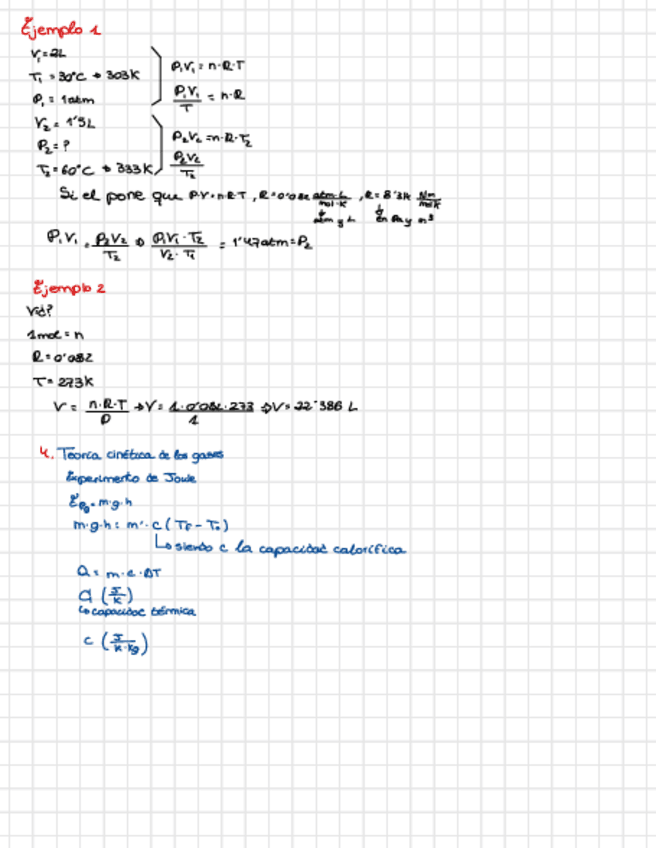 Ejemplo 1
V₁=2L
T₁=30°C → 303K
P₁=1atm
P₁V₁=n·R·T
P₁V₁/T = n·R
V₂=1'5L
P₂=?
T₂=60°C → 333K
P₂V₂=n·R·T₂
P₂V₂/T₂
Si el pone que P·V=n·R·T, R=0'082 atm·L/mol·K, R=8'31 Nm/mol·K
atm y L en Pa y m³
P₁V₁ = P₂V₂/T₂ ⇒ P₁V₁·T₂/V₂·T₁ = 1'47atm=P₂
Ejemplo 2
1mol=n
R=0'082
T=273K
V = n·R·T/P → V = 1·0'082·273/1 ⇒ V=22'386 L
4. Teoría cinética de los gases
Experimento de Joule
m·g·h = m'·c(T_F-T₀)
↳ siendo c la capacidad calorífica
Q = m·c·ΔT
C (J/K)
↳ capacidad térmica
c (J/K·kg)